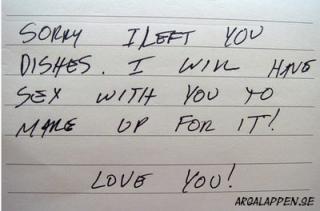 SORRY I LEFT YOU
DISHES. I WILL HAVE
SEX WITH YOU TO
MAKE UP FOR IT!
LOVE YOU!
ARGALAPPEN.SE